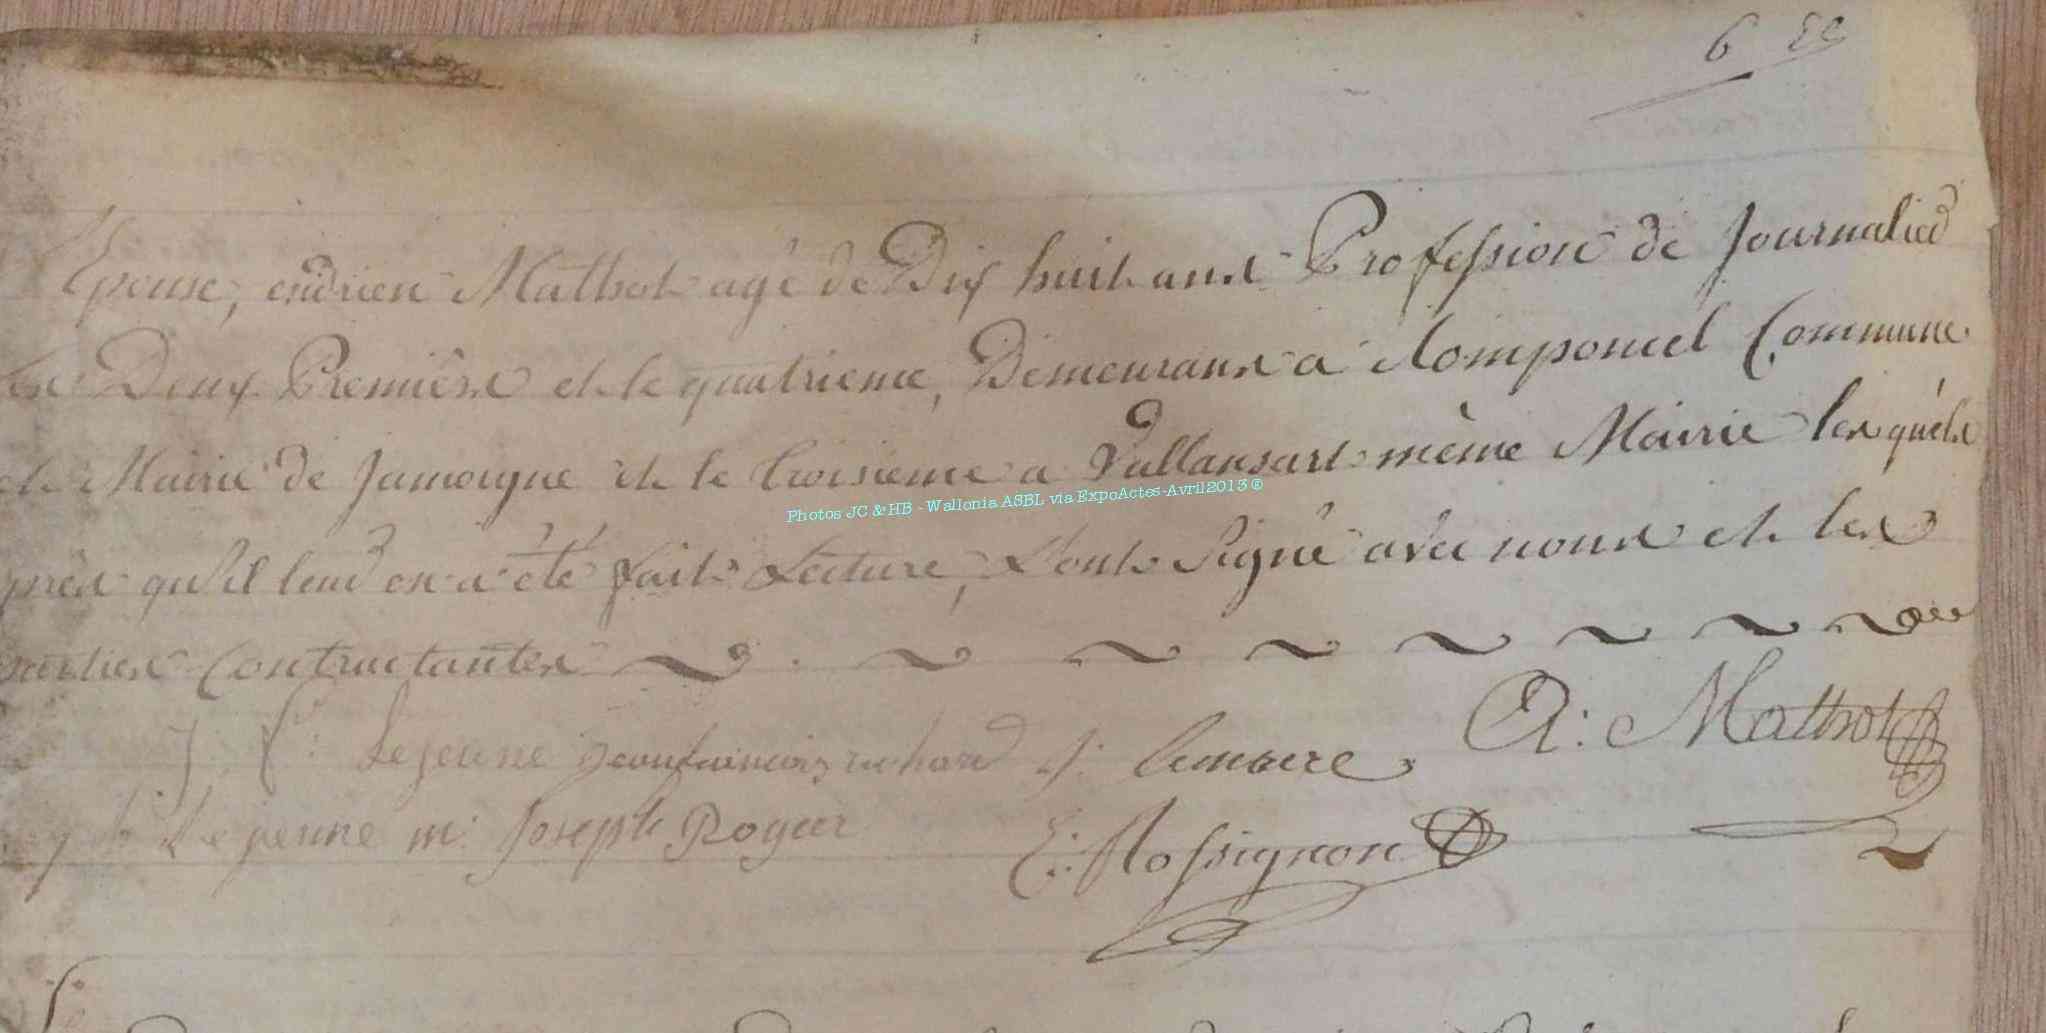 6
Epouse, andrien Mathot agé de Dix huit ans Profession de Journalier
les Deux Premiers et le quatrieme, Demeurans a Romponcel Commune
et Mairie de Jamoigne et le troisieme a Vallansart même Mairie lesquels
près qu'il leur en a été fait Lecture, L'ont Signé avec nous et les
parties Contractantes
J. Lejeune Jeanfrancois richard J. lemaire A: Mathot
Lejeune m: Joseph Roger E: Rossignon
Photos JC & HB - Wallonia ASBL via ExpoActes-Avril2013 ®